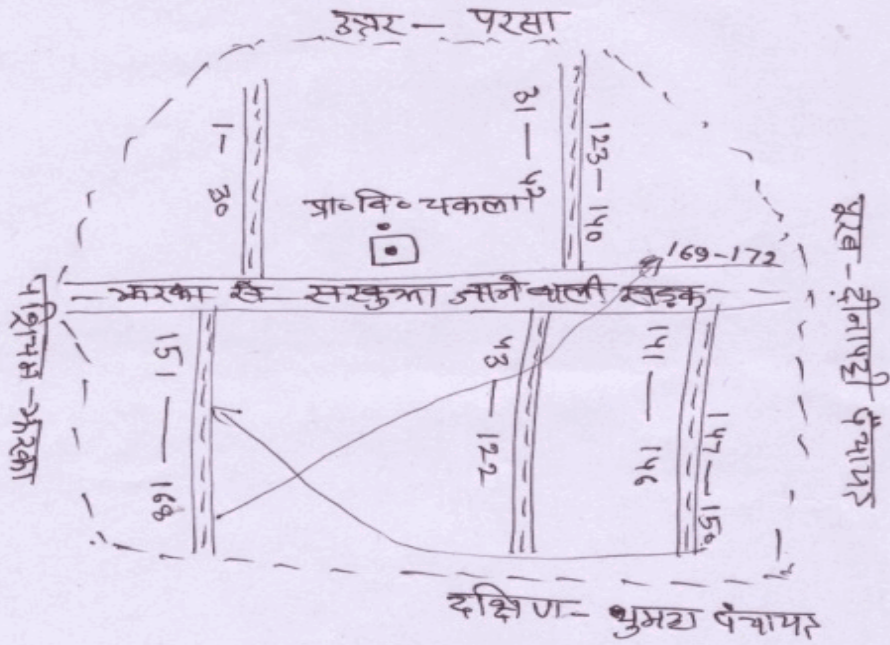 उत्तर - परसा
1 - 30
31 - 42
123 - 140
प्रा॰ वि॰ चकला
169-172
झरका से सरकुआ जाने वाली सड़क
पश्चिम - झरका
पूरब - दीनापट्टी पंचायत
151 - 168
43 - 122
141 - 146
147 - 150
दक्षिण - थुमहा पंचायत